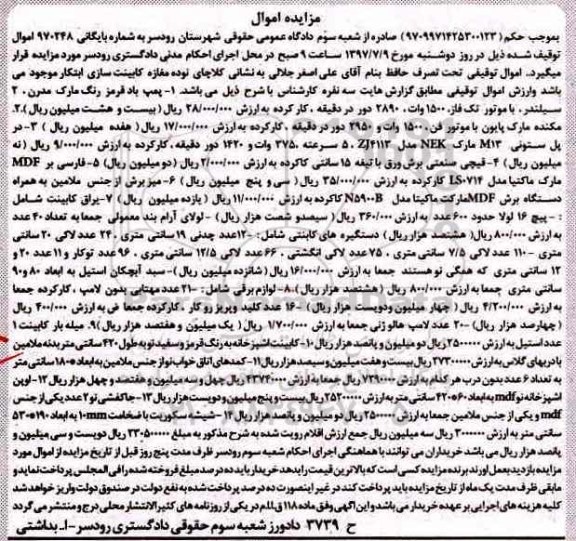 مزایده اموال
بموجب حکم (۹۷۰۹۹۷۱۴۲۵۳۰۰۱۲۳) صادره از شعبه سوم دادگاه عمومی حقوقی شهرستان رودسر به شماره بایگانی ۹۷۰۲۴۸ اموال
توقیف شده ذیل در روز دوشنبه مورخ ۱۳۹۷/۷/۹ ساعت ۹ صبح در محل اجرای احکام مدنی دادگستری رودسر مورد مزایده قرار
میگیرد. اموال توقیفی تحت تصرف حافظ بنام آقای علی اصغر جلالی به نشانی کلاچای نوده مغازه کابینت سازی ابتکار موجود می
باشد وارزش اموال توقیفی مطابق گزارش هایت سه نفره کارشناس با شرح ذیل می باشد. ۱- پمپ باد قرمز رنگ مارک مدرن، ۲
سیلندر، با موتور تک فاز، ۱۵۰۰ وات، ۲۸۹۰ دور در دقیقه، کارکرده به ارزش ۲۸/۰۰۰/۰۰۰ ریال( بیست و هشت میلیون ریال).۲-
مکنده مارک پایون با موتور فن، ۱۵۰۰ وات و ۲۹۵۰ دور در دقیقه، کارکرده به ارزش ۱۷/۰۰۰/۰۰۰ ریال( هفده میلیون ریال) ۳-در
پل ستونی M۱۳ مارک NEK مدل ZJ۴۱۱۳، ۵ سرعته ۳۷۵، وات و ۱۴۲۰ دور دقیقه، کارکرده به ارزش ۹/۰۰۰/۰۰۰ ریال (نه
میلیون ریال) ۴- قیچی صنعتی برش ورق با تیغه ۱۵ سانتی کارکرده به ارزش ۲/۰۰۰/۰۰۰ ریال (دو میلیون ریال) ۵-فارسی بر MDF
مارک ماکتیا مدل LS۰۷۱۴ کارکرده به ارزش ۳۵/۰۰۰/۰۰۰ ریال (سی و پنج میلیون ریال) ۶-میز برش از جنس ملامین به همراه
دستگاه برش MDF مارکت ماکیتا مدل N۵۹۰۰B کارکرده به ارزش ۱۱/۰۰۰/۰۰۰ ریال (یازده میلیون ریال) ۷-یراق کابینت شامل
: - پیچ ۱۶ لولا حدود ۶۰۰ عدد به ارزش ۳۶۰/۰۰۰ ریال( سیصدو شصت هزار ریال) -لولای آرام بند معمولی جمعا به تعداد ۴۰ عدد
به ارزش ۸۰۰/۰۰۰ ریال( هشتصد هزار ریال) دستگیره های کابینتی شامل: -۱۲عدد چدنی ۱۹ سانتی متری، ۲۴ عدد لاکی ۲۰ سانتی
متری -۱۱۰ عدد لاکی ۷/۵ سانتی متری، ۷۵ عدد لاکی انگشتی، ۶۶ عدد لاکی ۱۲/۵ سانتی متری، ۹۶ عدد توکار و ۱۱ عدد ۲۰ و
۱۳ سانتی متری که همگی نو هستند جمعا به ارزش ۱۶/۰۰۰/۰۰۰ ریال (شانزده میلیون ریال)- سبد آبچکان استیل به ابعاد ۸۰ و۹۰
سانتی متری جمعا به ارزش ۸۰۰/۰۰۰ ریال (هشتصد هزار ریال).۸-لوازم برقی شامل: -۲۱عدد مهتابی بدون لامپ، کارکرده جمعا
به ارزش ۴/۲۰۰/۰۰۰ ریال( چهار میلیون ودویست هزار ریال) -۱۶ عدد کلید وپریز رو کار، کارکرده جمعا ض به ارزش ۴۰۰/۰۰۰ ریال
(چهارصد هزار ریال) -۲۰ عدد لامپ هالو ژنی جمعا به ارزش ۱/۷۰۰/۰۰۰ ریال (یک میلیون و هفتصد هزار ریال)۹- میله بار کابینت ۱
عدد استیل به ارزش ۲۵۰۰۰۰۰ ریال دو میلیون و پانصد هزار ریال ۱۰-کابینت اشپزخانه به رنگ قرمز و سفید نو به طول ۴۲۰ سانتی متر بدنه ملامین
با دربهای گلاس به ارزش ۲۷۳۰۰۰۰۰ ریال بیست و هفت میلیون و سیصد هزار ریال ۱۱-کمدهای اتاق خواب نو از جنس ملامین به ابعاد ۱۸۰۰ سانتی متر
به تعداد ۶ عدد بدون درب هر کدام به ارزش ۷۲۹۰۰۰۰ ریال جمعا به ارزش ۴۳۷۴۰۰۰۰ ریال چهل و سه میلیون و هفتصد و چهل هزار ریال ۱۲-اوپن
اشپزخانه نو mdf به ابعاد ۶۰*۴۲۰ سانتی متر به ارزش ۲۵۲۰۰۰۰۰ ریال بیست و پنج میلیون و دویست هزار ریال ۱۳-جاکفشی نو ۲ عدد یکی از جنس
mdf و یکی از جنس ملامین جمعا به ارزش ۲۵۰۰۰۰۰ ریال دو میلیون و پانصد هزار ریال ۱۴- شیشه سکوریت با ضخامت 10mm به ابعاد ۱۹۰*۵۳
سانتی متر به ارزش ۳۰۰۰۰۰۰ ریال سه میلیون ریال جمع ارزش اقلام رویت شده به شرح مذکور به مبلغ ۲۳۰۵۰۰۰۰۰ ریال دویست و سی میلیون و
پانصد هزار ریال می باشد خریداران می توانند با هماهنگی اجرای احکام شعبه سوم رودسر ظرف مدت پنج روز قبل از تاریخ مزایده از اموال مورد
مزایده بازدید بعمل اورند برنده مزایده کسی است که بالاترین قیمت را بدهد خریدار باید ده درصد مبلغ فروخته شده را فی المجلس پرداخت نماید و
مابقی ظرف مدت یک ماه از تاریخ مزایده باید پرداخت کند در غیر اینصورت ده درصد پرداخت شده به نفع دولت در صندوق دولت واریز خواهد شد
کلیه هزینه های اجرایی بر عهده خریدار می باشد و این اگهی وفق ماده ۱۱۸ ق.ا.م در یکی از روزنامه های کثیرالانتشار محلی درج و منتشر می گردد
ح ۳۷۳۹ دادورز شعبه سوم حقوقی دادگستری رودسر-ا. بداشتی